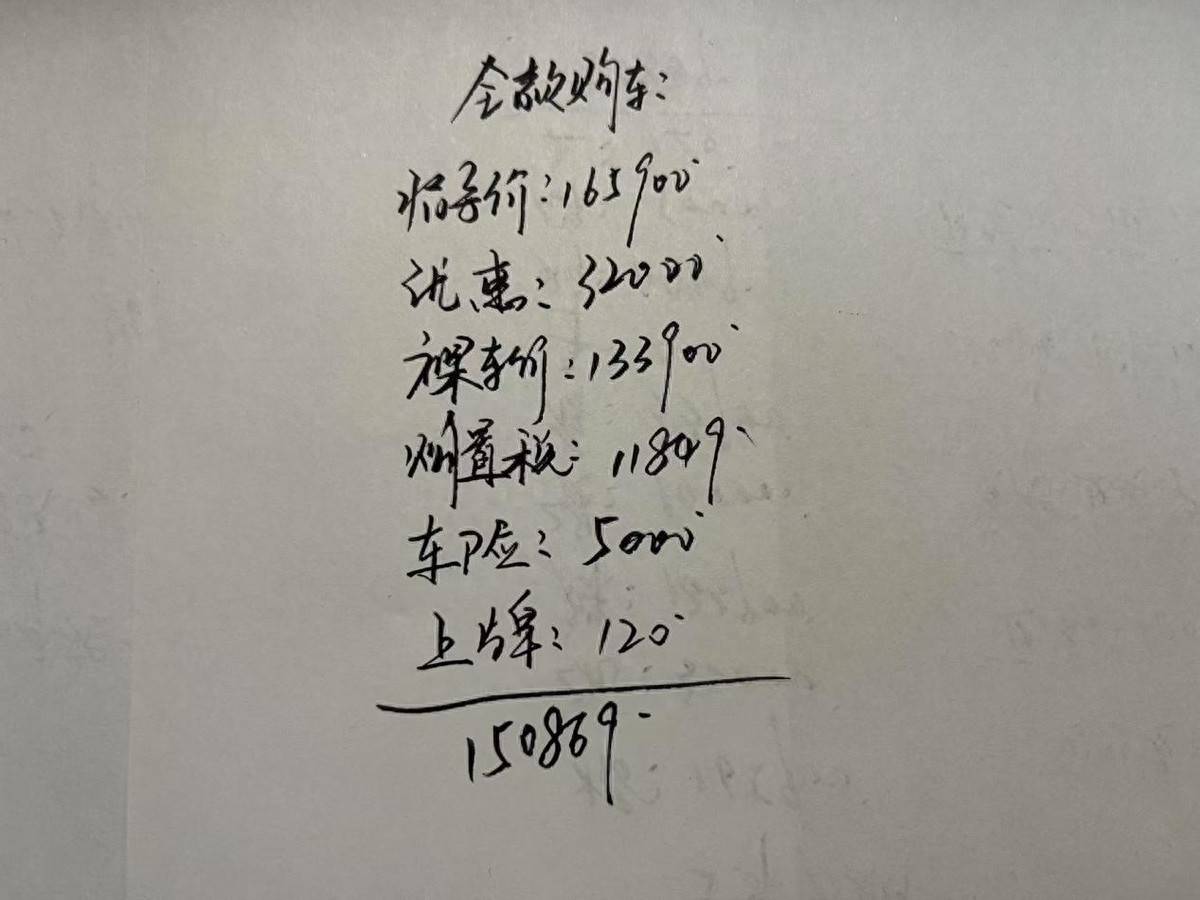 全款购车:
指导价:165900
优惠:32000
裸车价:133900
购置税:11849
车险:5000
上牌:120
150869